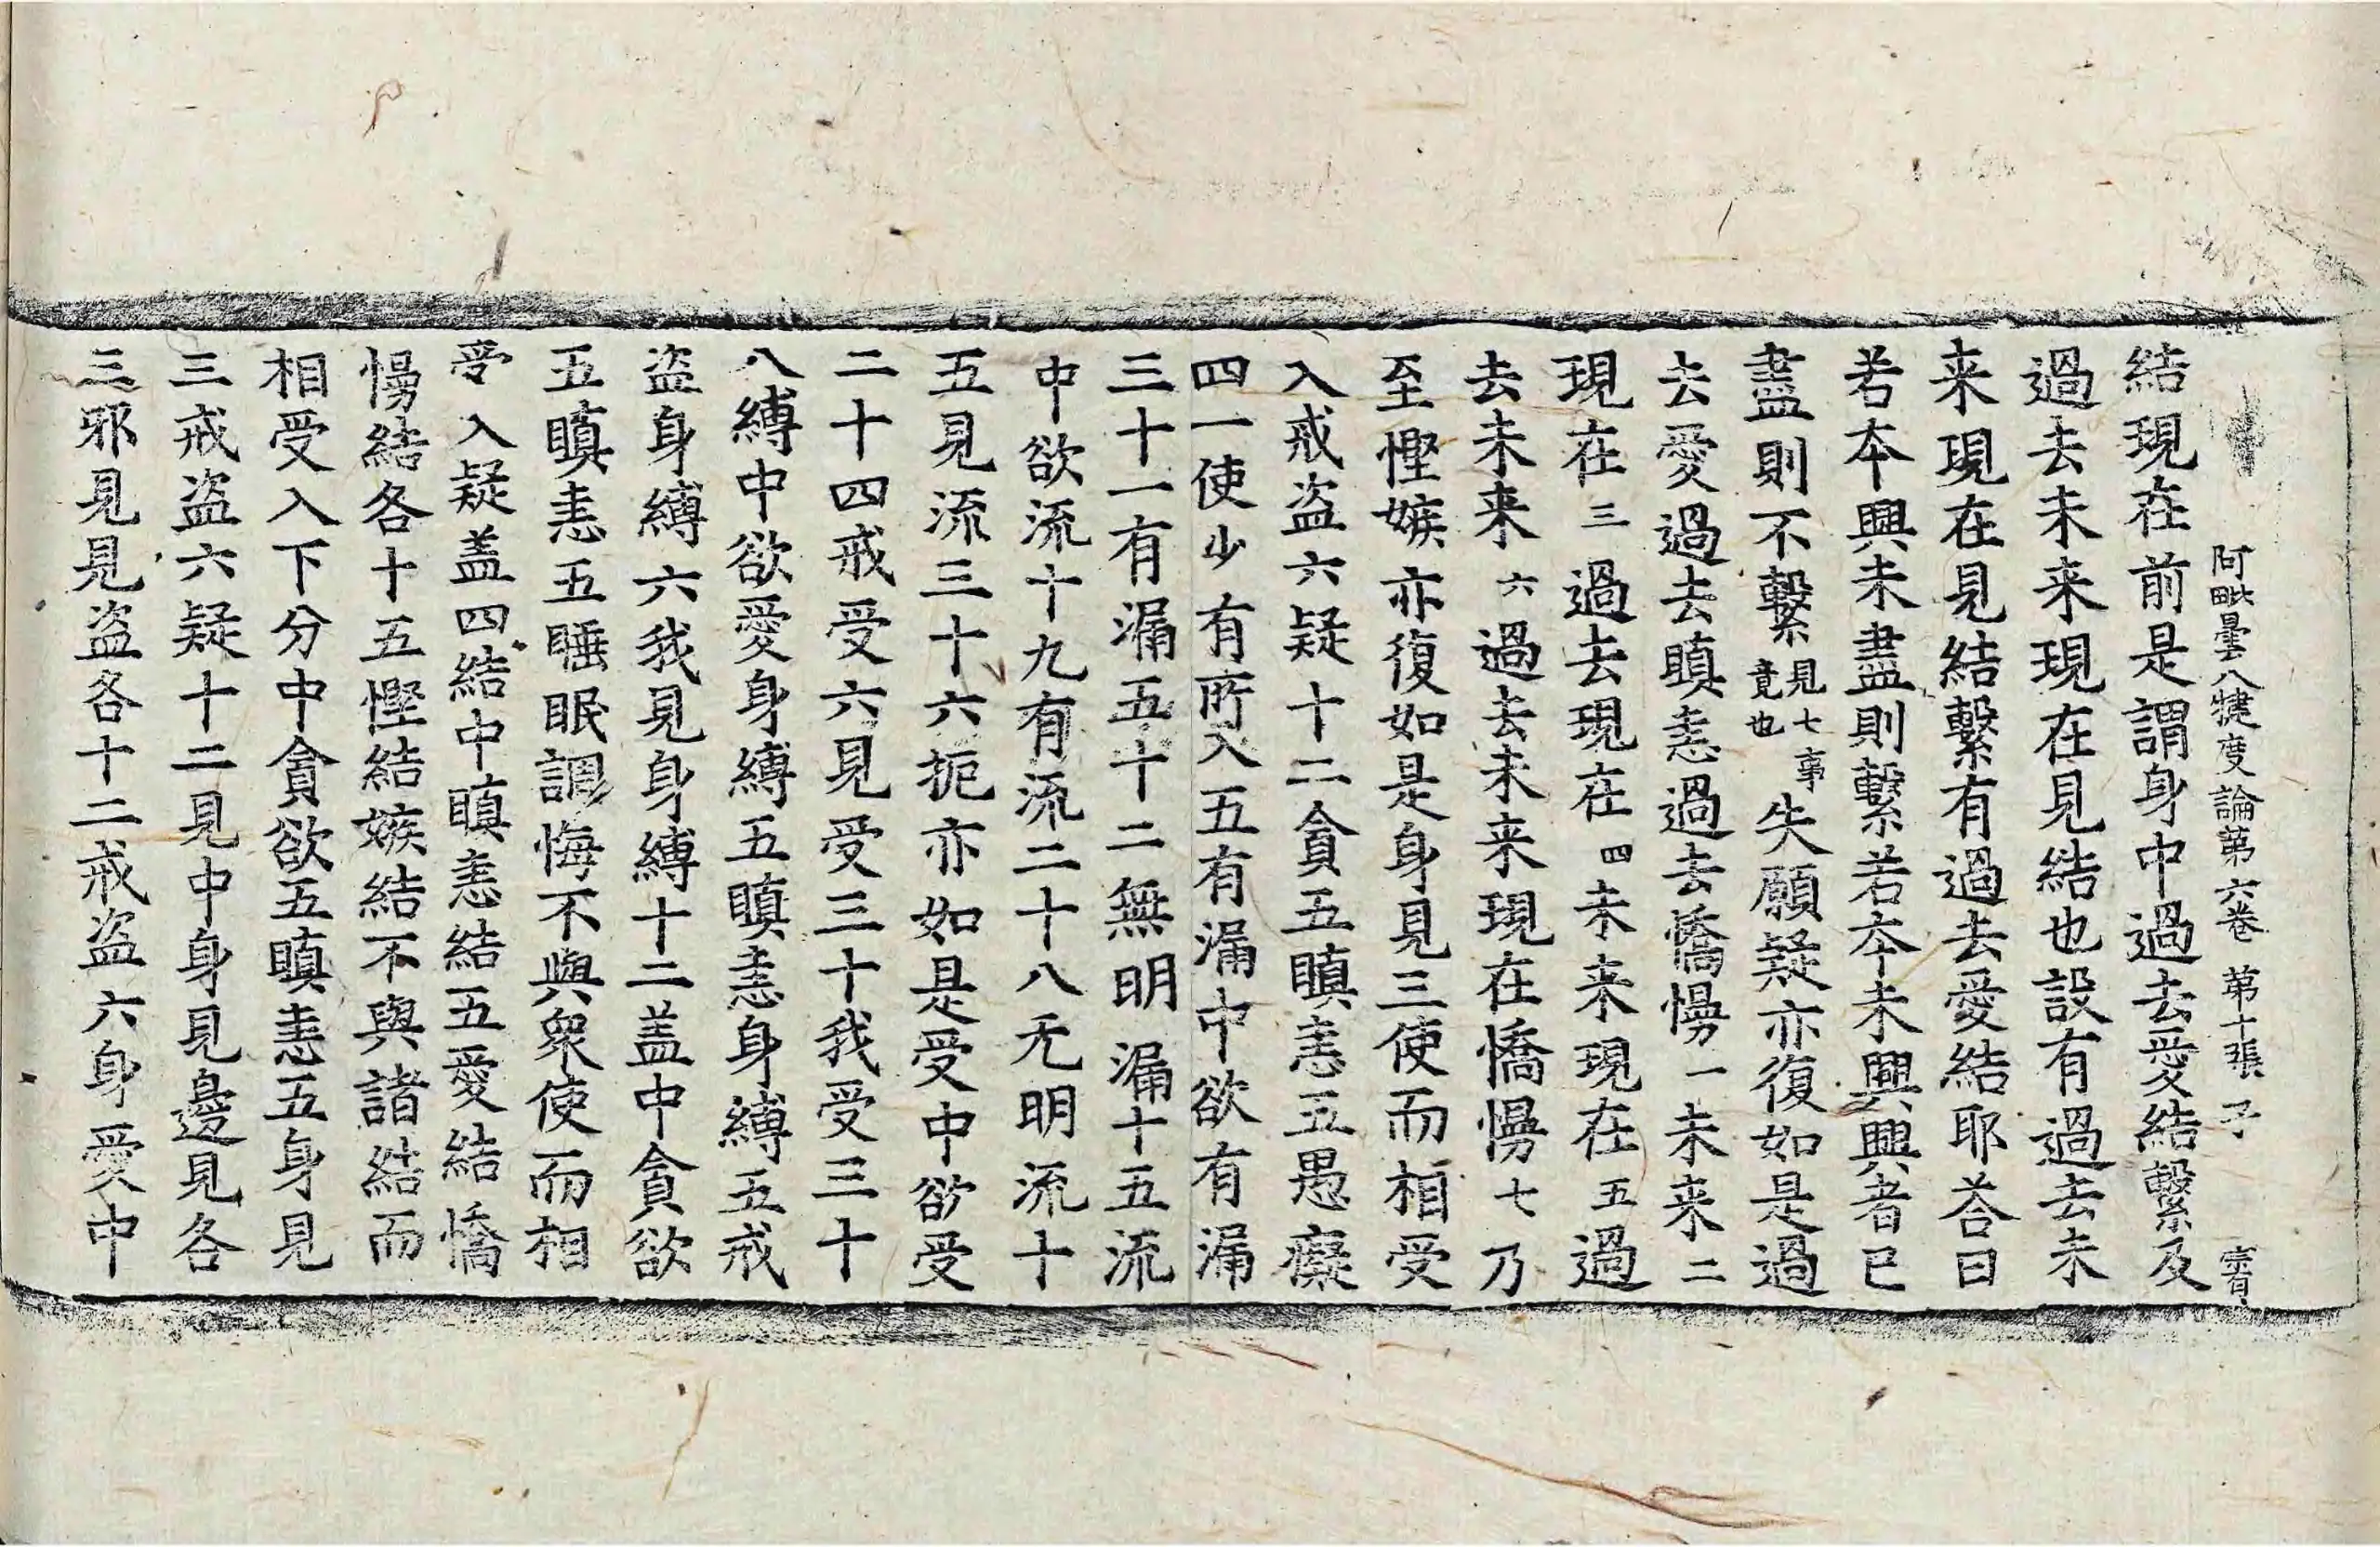 阿毗曇八犍度論第六卷 第十張 子 寶
結現在前是謂身中過去愛結繫及
過去未来現在見結也設有過去未
来現在見結繫有過去愛結耶荅曰
若夲興未盡則繫若夲未興興者已
盡則不繫見七事竟也失願疑亦復如是過
去愛過去瞋恚過去憍慢一未来二
現在三過去現在四未来現在五過
去未来六過去未来現在憍慢七乃
至慳嫉亦復如是身見三使而相受
入戒盗六疑十二貪五瞋恚五愚癡
四一使少有所入五有漏中欲有漏
三十一有漏五十二無明漏十五流
中欲流十九有流二十八无明流十
五見流三十六扼亦如是受中欲受
二十四戒受六見受三十我受三十
八縛中欲愛身縛五瞋恚身縛五戒
盗身縛六我見身縛十二盖中貪欲
五瞋恚五睡眠調悔不與衆使而相
受入疑盖四結中瞋恚結五愛結憍
慢結各十五慳結嫉結不與諸結而
相受入下分中貪欲五瞋恚五身見
三戒盗六疑十二見中身見邊見各
三邪見見盗各十二戒盗六身愛中